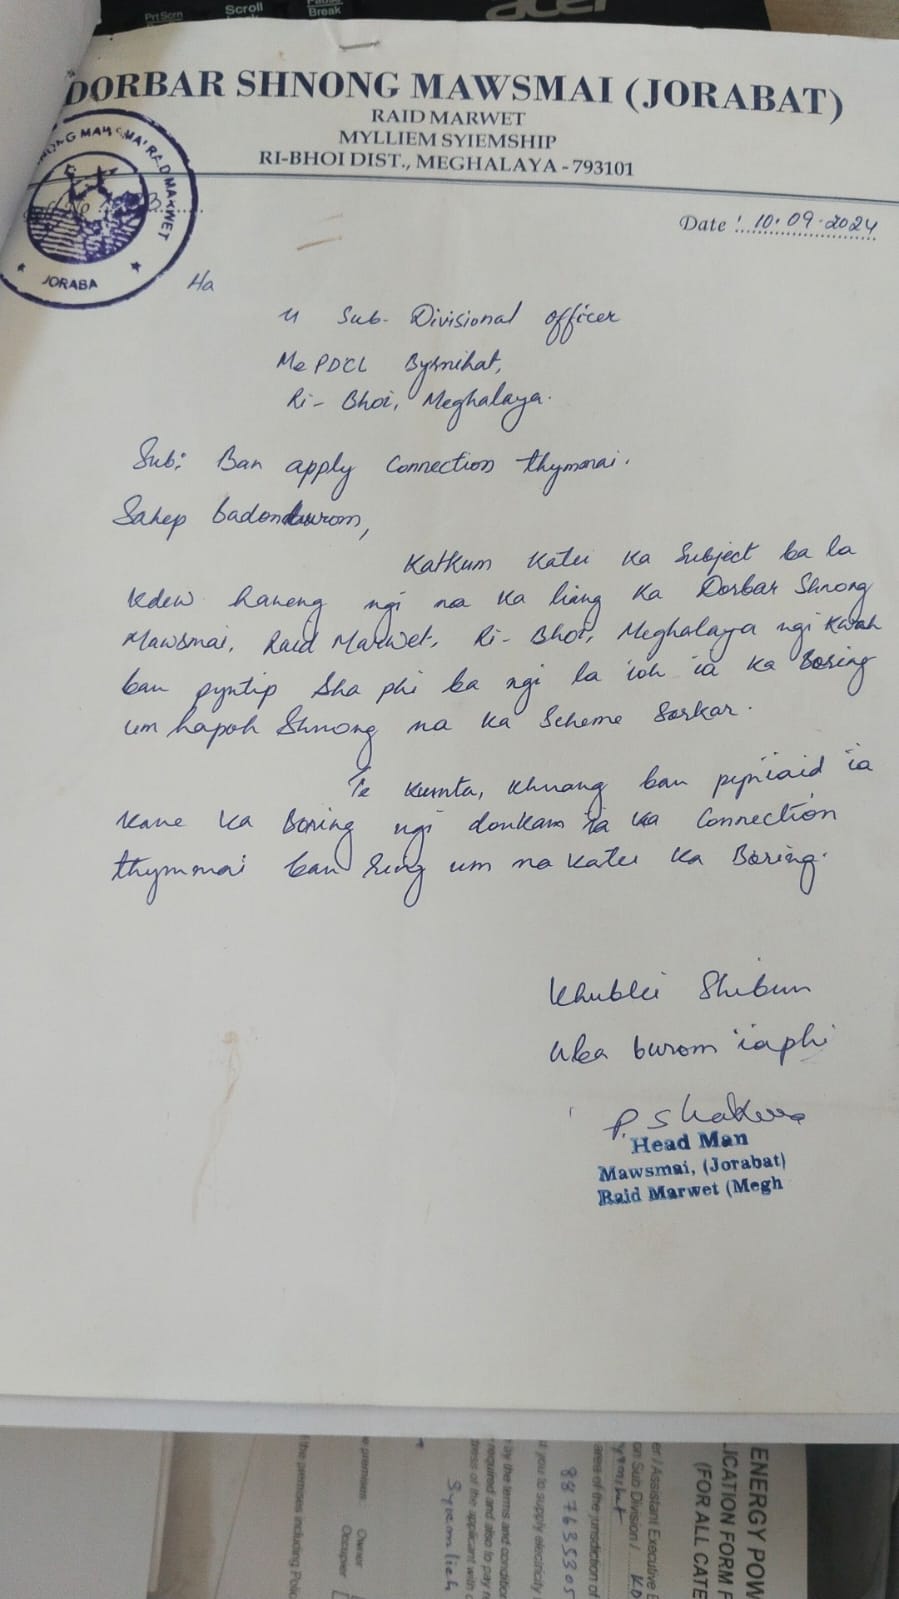 PrtScrn
Scroll
Pause
Break
acer
DORBAR SHNONG MAWSMAI (JORABAT)
RAID MARWET
MYLLIEM SYIEMSHIP
RI-BHOI DIST., MEGHALAYA - 793101
NONG MAWSMAI RAID MARWET
JORABA
Date : 10.09.2024
Ha
U Sub-Divisional Officer
MePDCL Byrnihat,
Ri-Bhoi, Meghalaya.
Sub: Ban apply Connection thymmai.
Sahep badonburom,
Katkum katei ka Subject ba la
kdew haneng ngi na ka liang ka Dorbar Shnong
Mawsmai, Raid Marwet, Ri-Bhoi, Meghalaya ngi kwah
ban pyntip Sha phi ba ngi la ioh ia ka Boring
um hapoh Shnong na ka Scheme Sorkar.
Te kumta, khnang ban pyniaid ia
kane ka Boring ngi donkam ia ka Connection
thymmai ban ring um na katei ka Boring.
Khublei Shibun
Uba burom iaphi
Head Man
Mawsmai, (Jorabat)
Raid Marwet (Megh
ENERGY POW
ICATION FORM F
(FOR ALL CATE
er / Assistant Executive E
on Sub Division /
area of the jurisdiction of
t you to supply electricity
887635305
by the terms and condition
required and also to pay
dress of the applicant with
Syiemlieh
e premises:
Owner
Occupier
f the premises including Polic